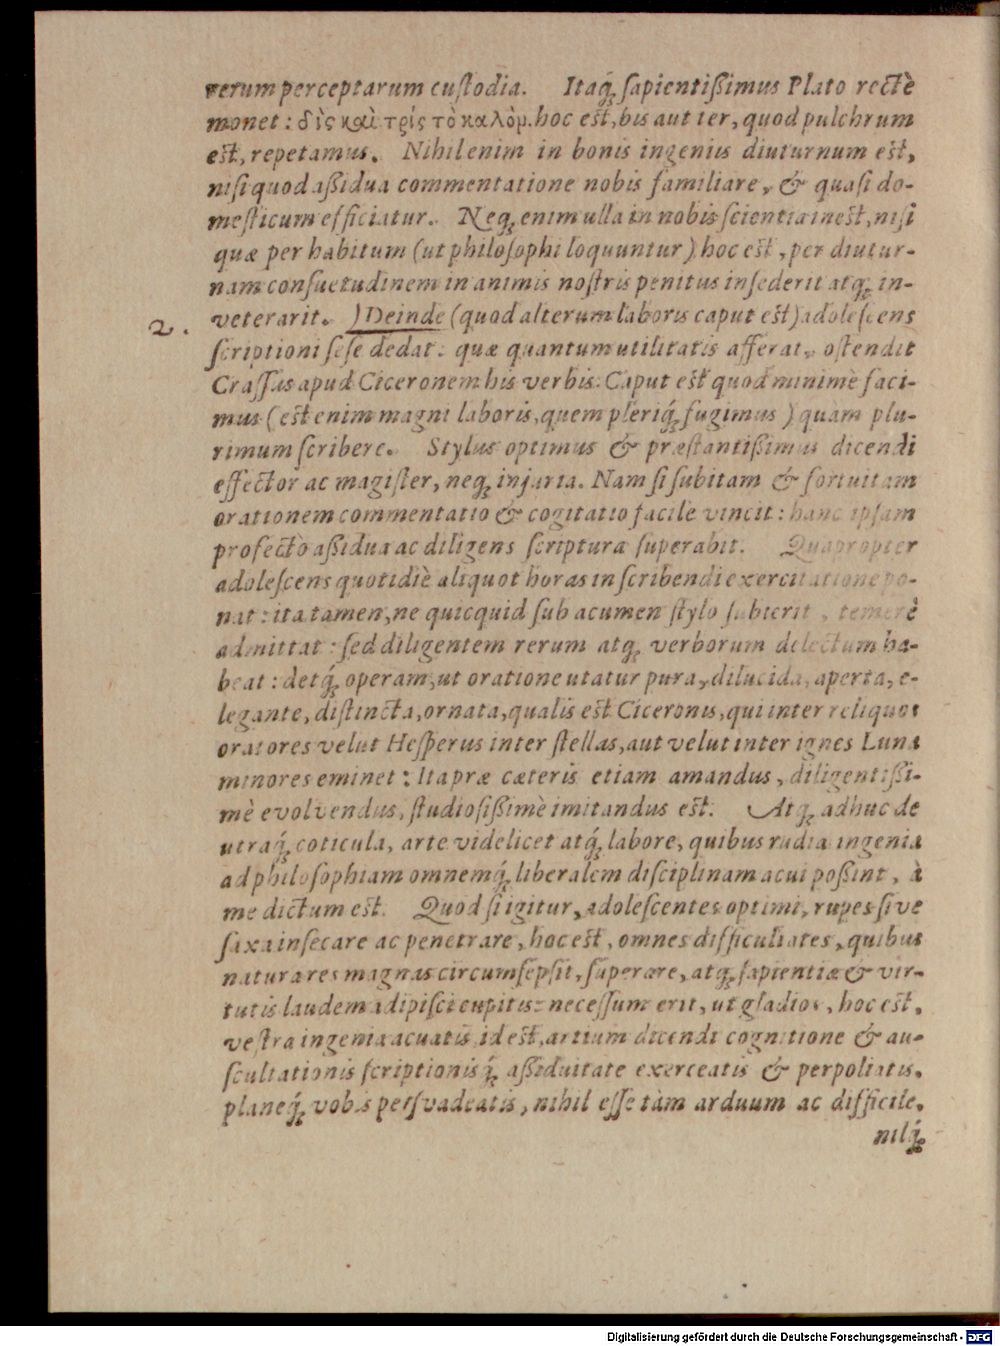 rerum perceptarum custodia. Itaq́; sapientißimus Plato rectè
monet: δὶς καὶ τρίς τὸ καλόμ. hoc est, bis aut ter, quod pulchrum
est, repetamus. Nihil enim in bonis ingeniis diuturnum est,
nisi quod aßidua commentatione nobis familiare, & quasi do-
mesticum efficiatur. Neq; enim ulla in nobis scientia inest, nisi
quæ per habitum (ut philosophi loquuntur) hoc est, per diutur-
nam consuetudinem in animis nostris penitus insederit atq; in-
veterarit. ) Deinde (quod alterum laboris caput est) adolescens
2.
scriptioni sese dedat: quæ quantum utilitatis afferat, ostendit
Crassus apud Ciceronem his verbis: Caput est quod minimè faci-
mus (est enim magni laboris, quem pleriq́; fugimus) quàm plu-
rimum scribere. Stylus optimus & præstantißimus dicendi
effector ac magister, neq; injuria. Nam si subitam & fortuitam
orationem commentatio & cogitatio facile vincit: hanc ipsam
profectò aßidua ac diligens scriptura superabit. Quapropter
adolescens quotidiè aliquot horas in scribendi exercitatione po-
nat: ita tamen, ne quicquid sub acumen stylo subierit, temerè
admittat: sed diligentem rerum atq; verborum delectum ha-
beat: detq́; operam, ut oratione utatur pura, dilucida, aperta, e-
legante, distincta, ornata, qualis est Ciceronis, qui inter reliquos
oratores velut Hesperus inter stellas, aut velut inter ignes Luna
minores eminet: Ita præ cæteris etiam amandus, diligentißi-
mè evolvendus, studiosißimè imitandus est. Atq; adhuc de
utraq́; coticula, arte videlicet atq́; labore, quibus rudia ingenia
ad philosophiam omnemq́; liberalem disciplinam acui poßint, à
me dictum est. Quod si igitur, adolescentes optimi, rupes sive
saxa insecare ac penetrare, hoc est, omnes difficultates, quibus
natura res magnas circumsepsit, superare, atq; sapientiæ & vir-
tutis laudem adipisci cupitis: necessum erit, ut gladios, hoc est,
vestra ingenia acuatis, id est, artium dicendi cognitione & au-
scultationis scriptionisq́; aßiduitate exerceatis & perpoliatis.
planeq́; vobis persvadeatis, nihil esse tàm arduum ac difficile,
nilq́;
Digitalisierung gefördert durch die Deutsche Forschungsgemeinschaft - DFG